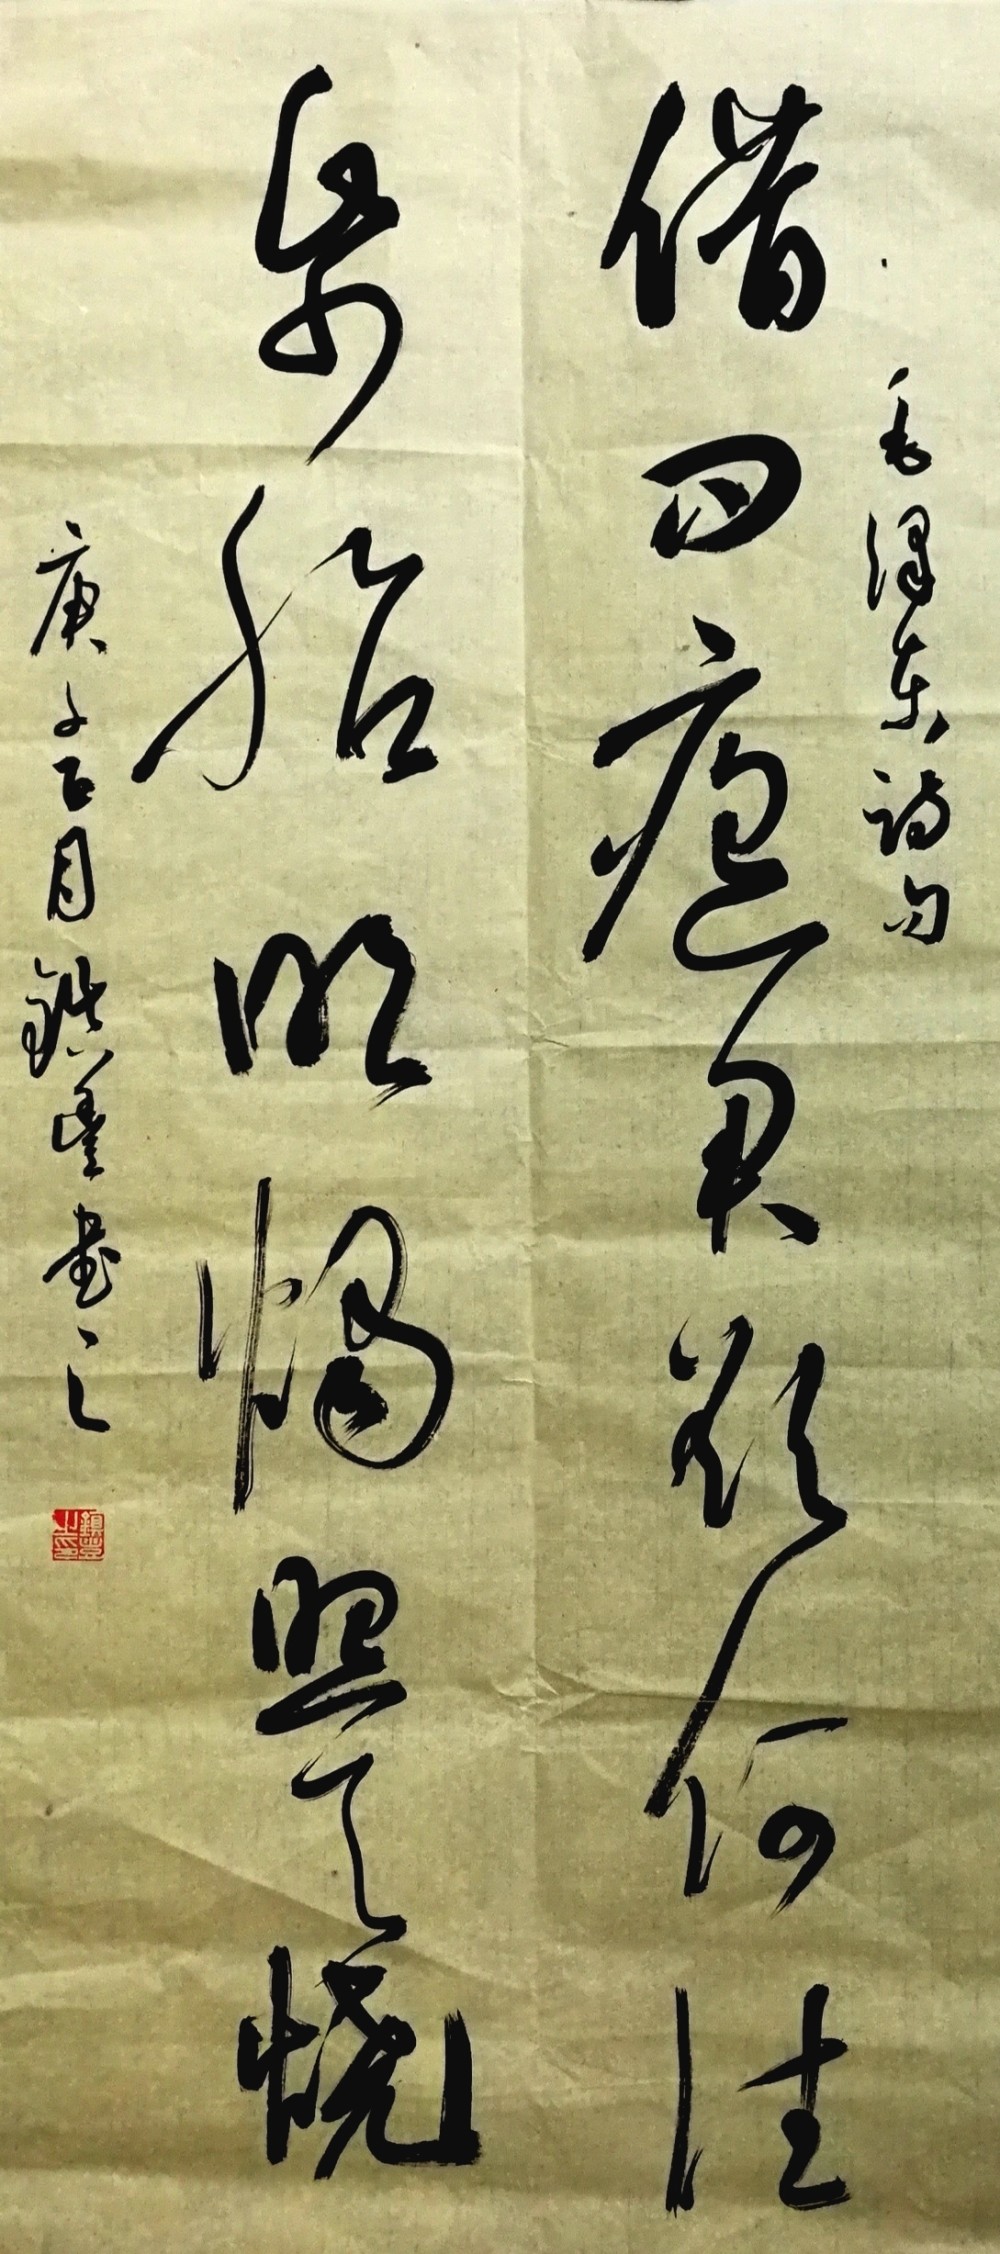 毛泽东诗句
借问瘟君欲何往
纸船明烛照天烧
庚子月镇豐书之